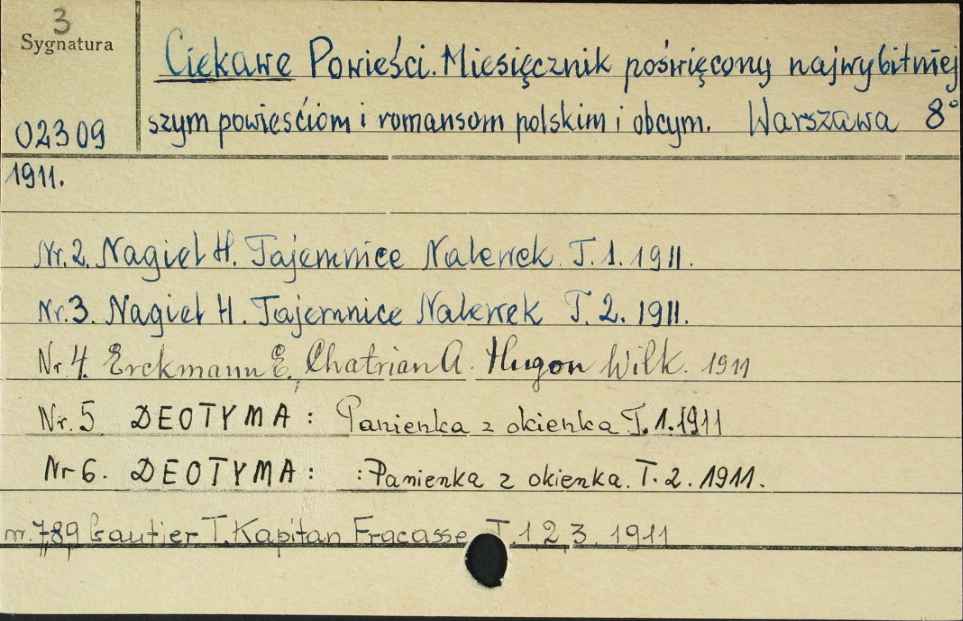 3
Sygnatura
02309
Ciekawe Powieści. Miesięcznik poświęcony najwybitniej
szym powieściom i romansom polskim i obcym. Warszawa 8°
1911.
Nr. 2. Nagiel H. Tajemnice Nalewek. T. 1. 1911.
Nr. 3. Nagiel H. Tajemnice Nalewek T. 2. 1911.
Nr 4. Erckmann E., Chatrian A. Hugon Wilk. 1911
Nr. 5 DEOTYMA: Panienka z okienka T. 1. 1911
Nr 6. DEOTYMA: :Panienka z okienka. T. 2. 1911.
nr. 7,8,9 Gautier T. Kapitan Fracasse T. 1, 2, 3. 1911